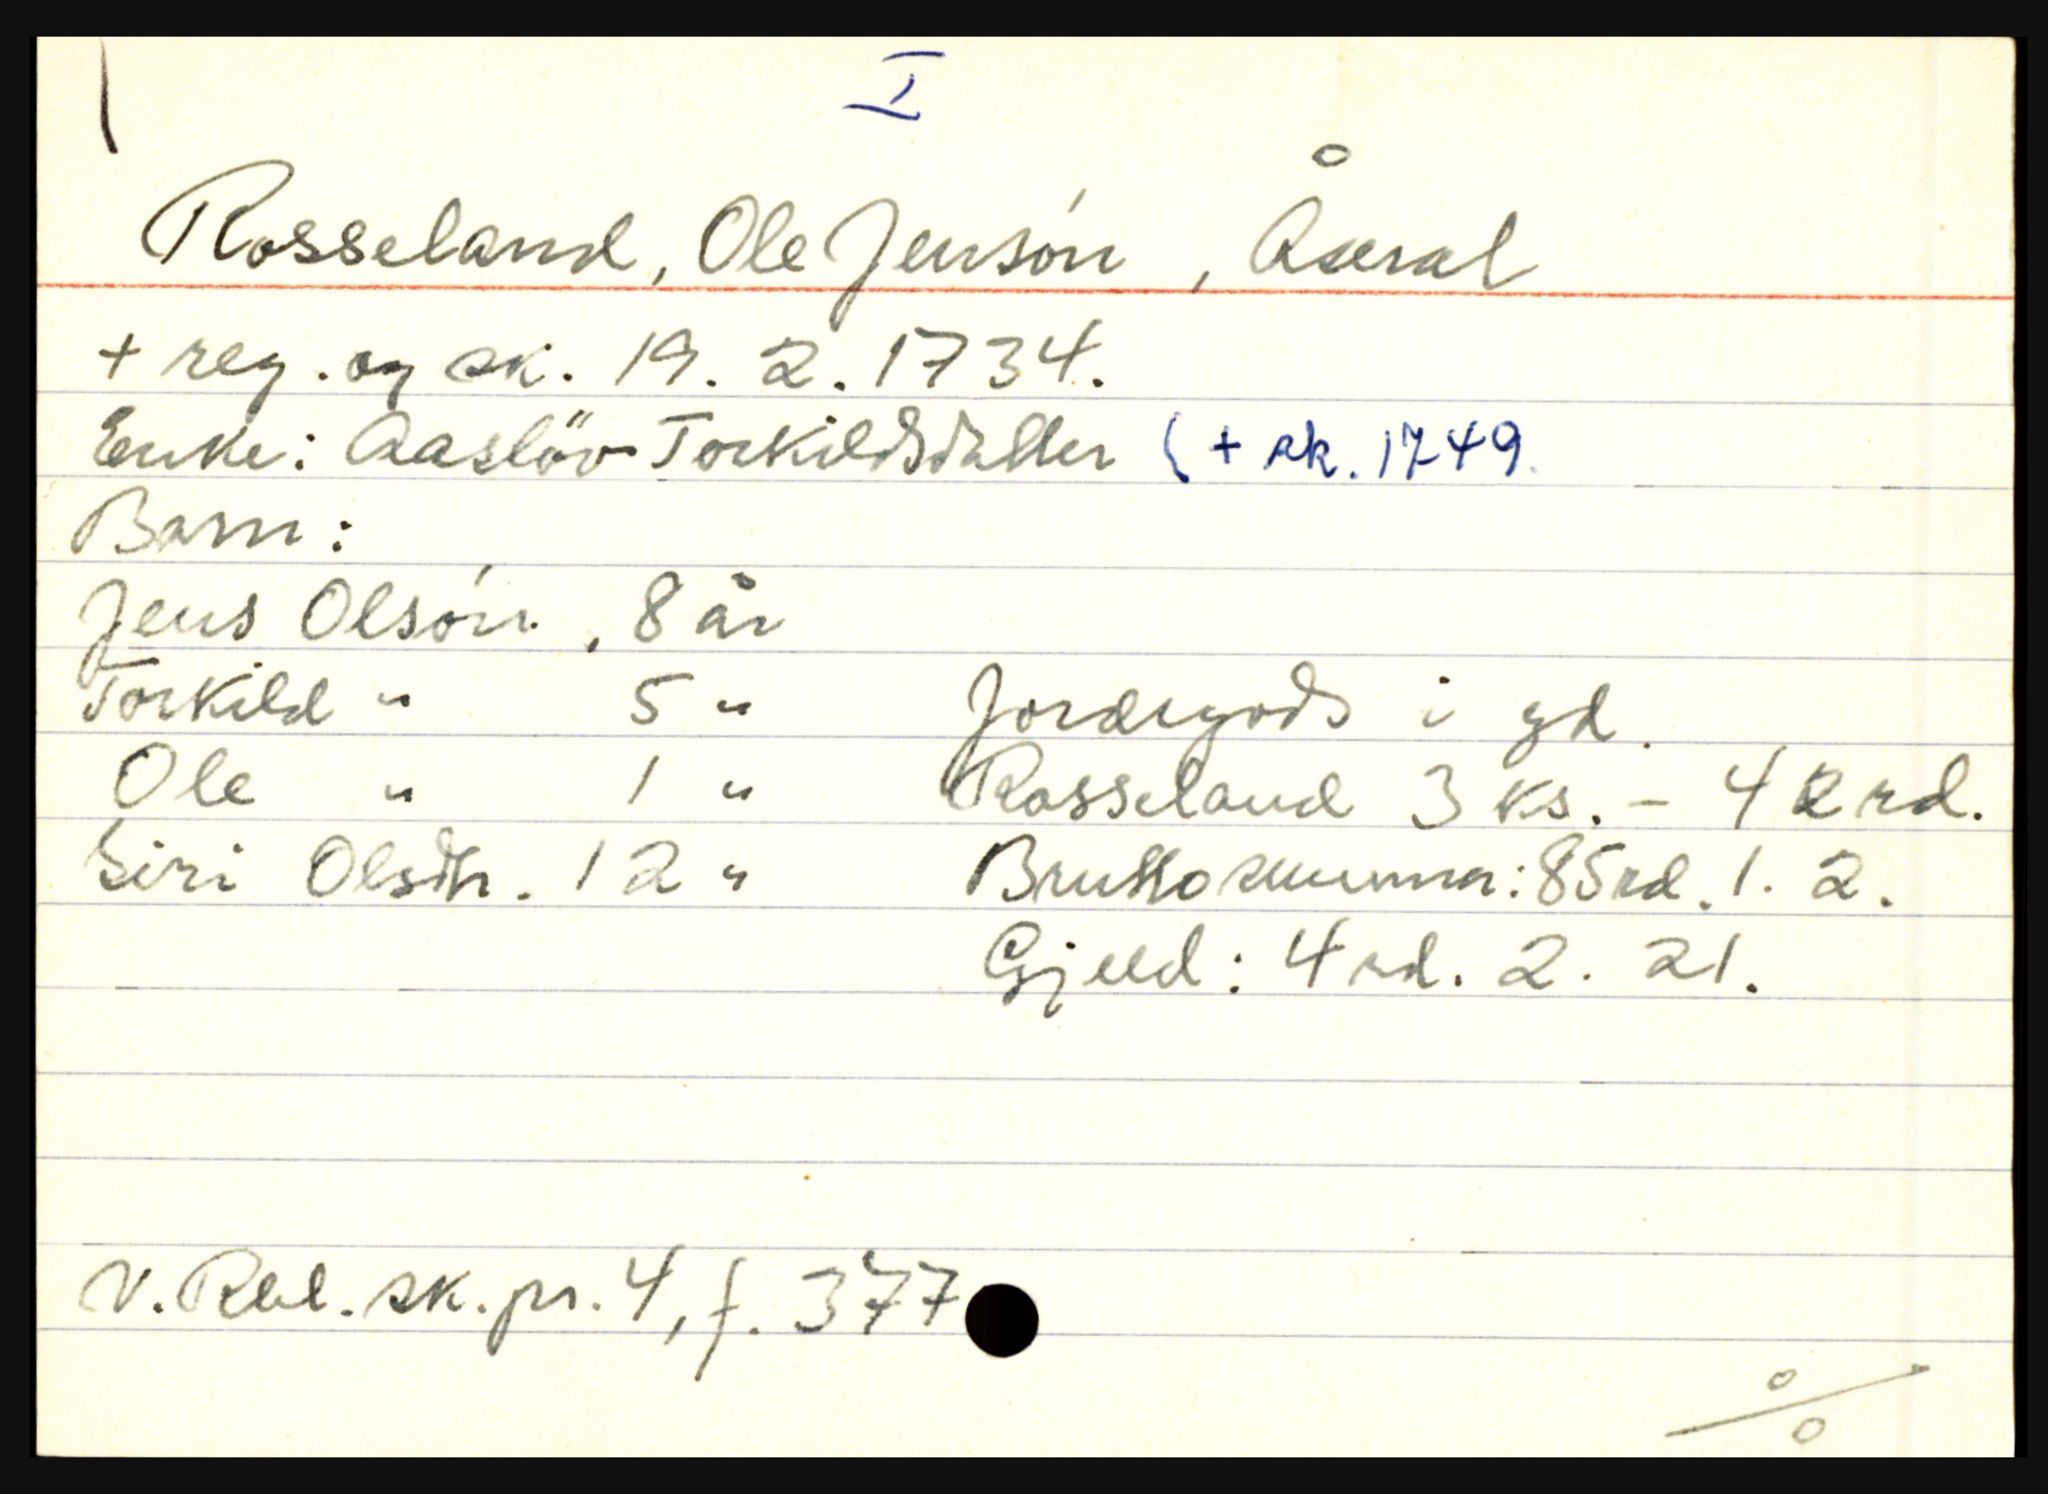 I
Rosseland, Ole Jensón, Åseral
+ reg. og sk. 19. 2. 1734.
Enke: Aaslöv Torkildsdatter ( + sk. 1749.
Barn:
Jens Olsón, 8 år
Torkild " 5 " Jordegods i gd.
Ole " 1 " Rosseland 3 ks. - 42 rd.
Siri Olsdtr. 12 " Bruttosumma: 85 rd. 1. 2.
Gjeld: 4 rd. 2. 21.
V. Rbl. sk. pr. 4, f. 377